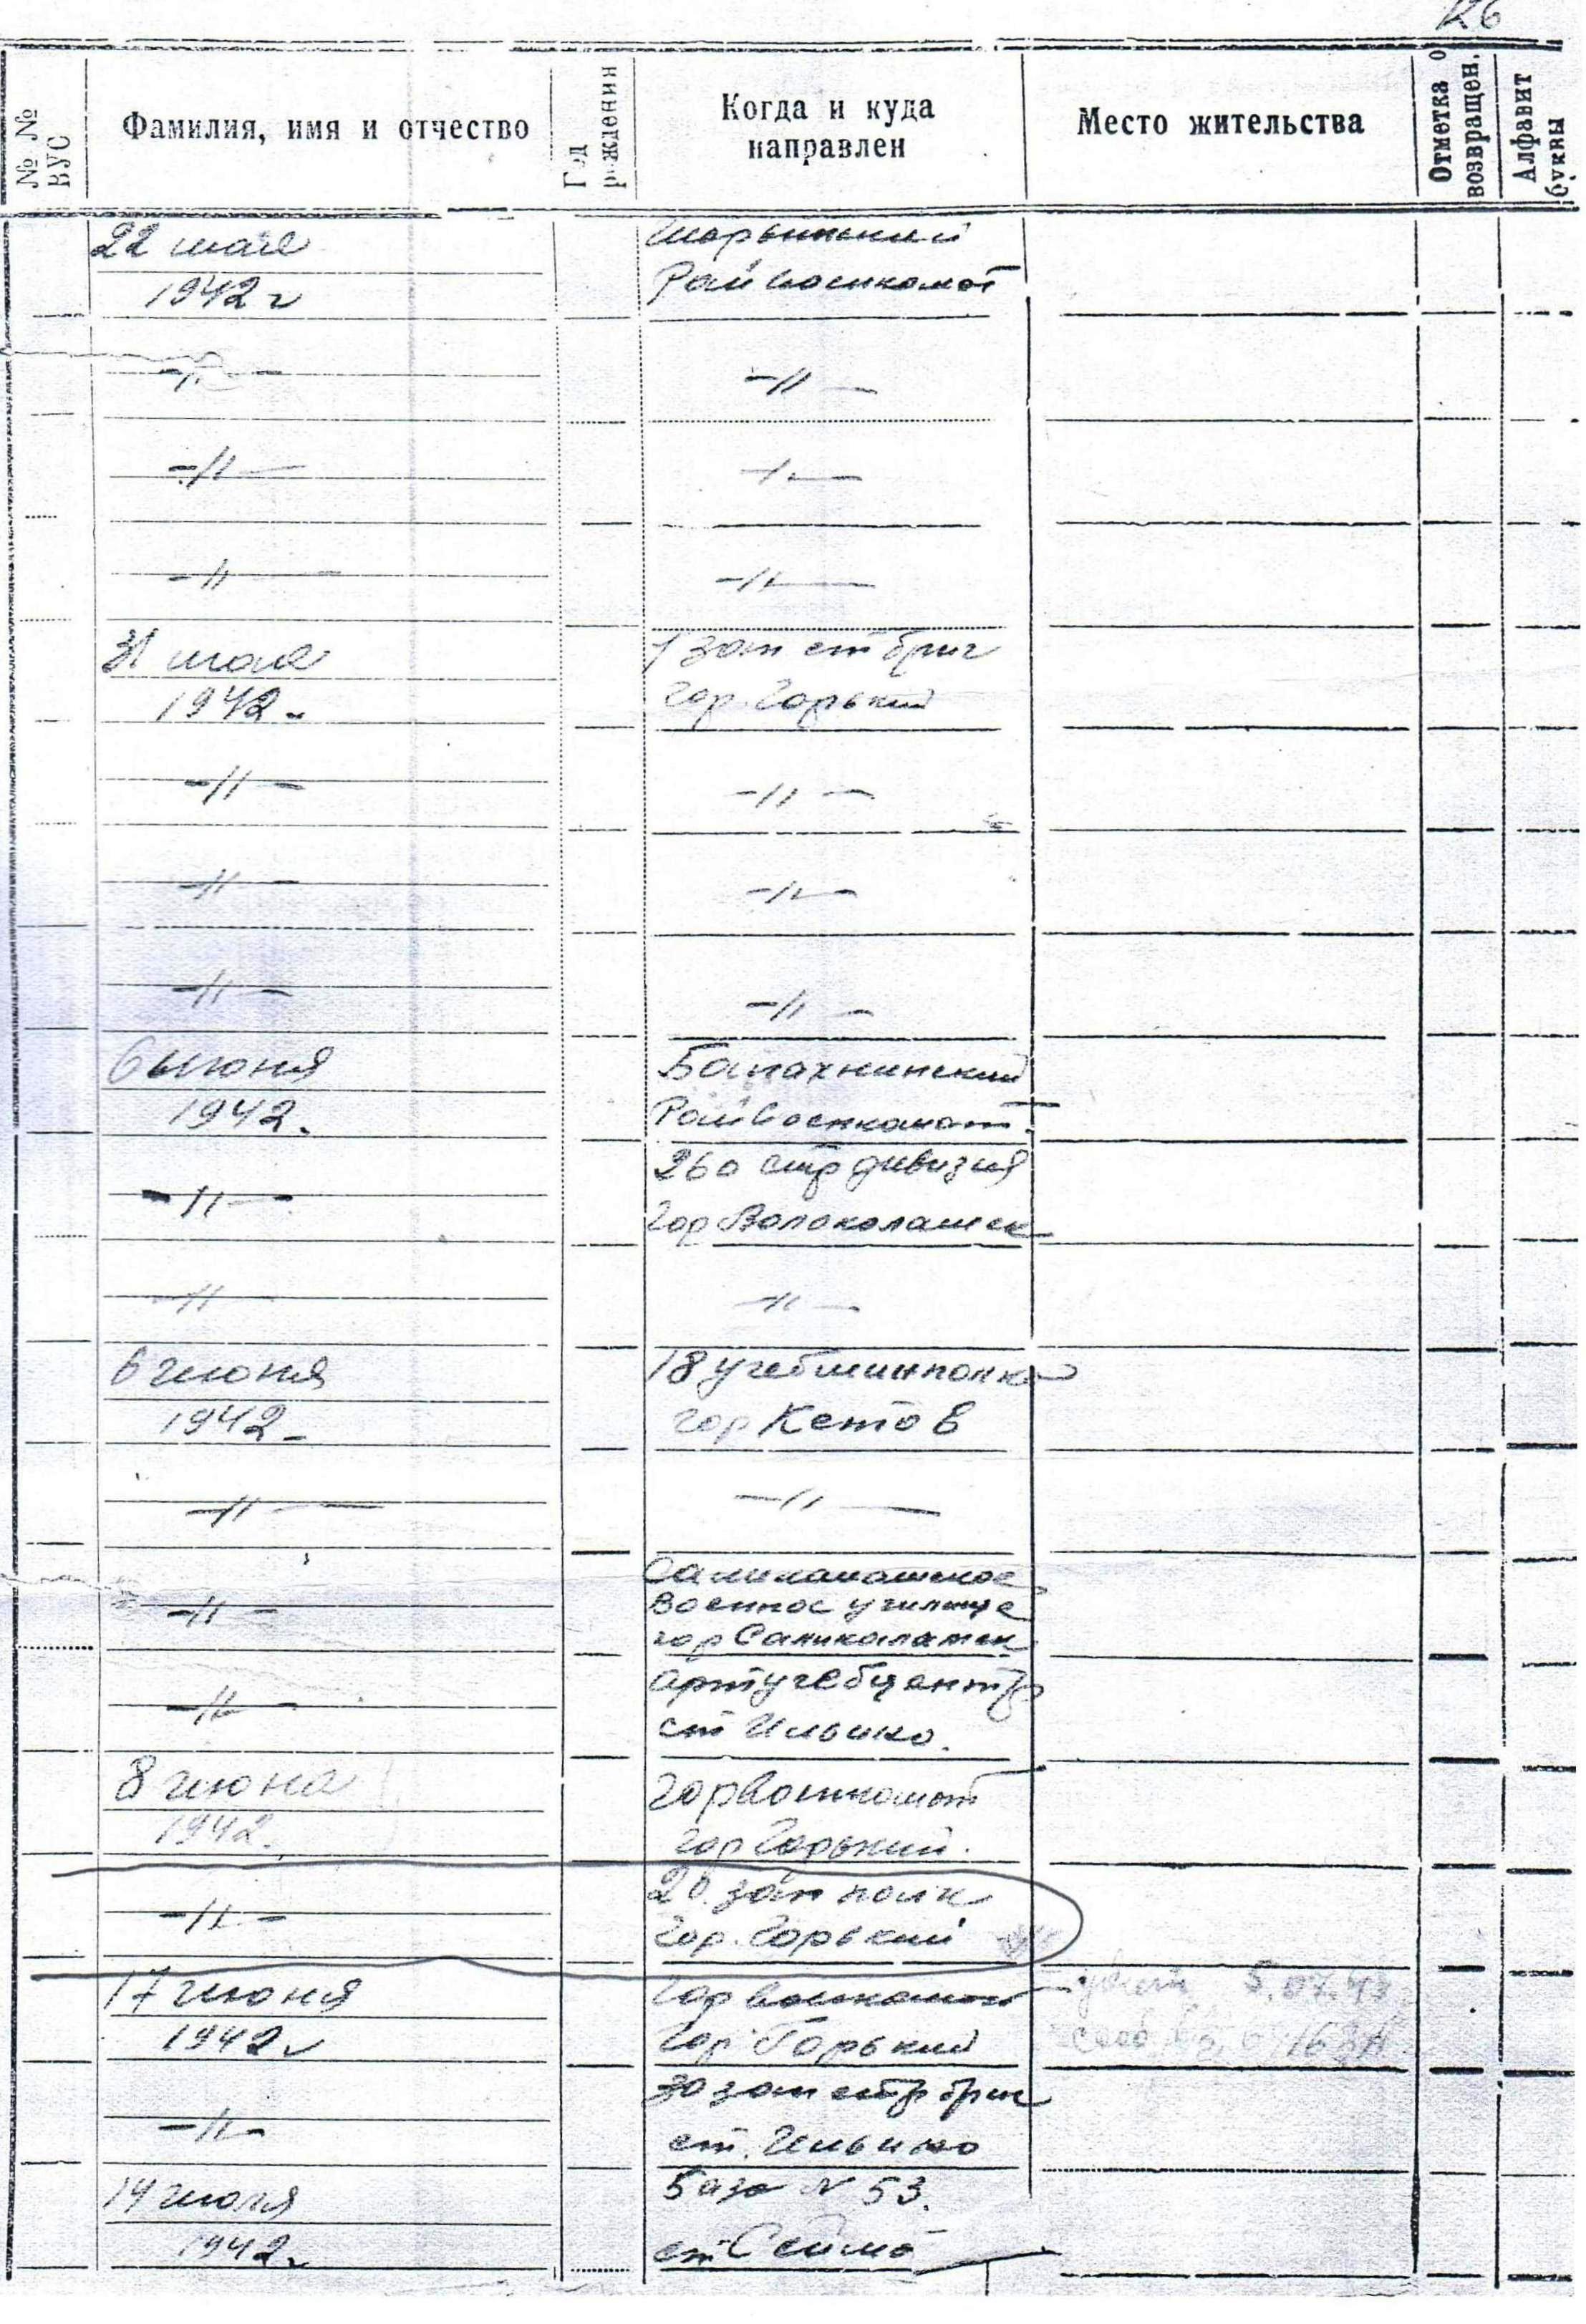 126
№ № ВУС
Фамилия, имя и отчество
Год рождения
Когда и куда направлен
Место жительства
Отметка о возвращен.
Алфавит буквы
22 мая
1942 г
Шарьинский
Райвоенкомат
-//- -//-
-//- -//-
-//- -//-
31 мая
1942.
1 зап стр бриг
Гор. Горький
-//- -//-
-//- -//-
-//- -//-
6 июня
1942.
Балахнинский
Райвоенкомат.
-//-
260 стр дивизия
Гор Волоколамск
-//- -//-
6 июня
1942.
18 учебминполк
гор Кстов
-//- -//-
-//-
военное училище
гор
-//-
Артучебцентр
ст Ильино.
8 июня
1942.
Горвоенкомат
гор Горький.
-//-
20. зап полк
Гор. Горький
17 июня
1942 г
Горвоенкомат
Гор Горький
5.07.43
-//-
30 зап стр бриг
ст. Ильино
14 июля
1942 г
База N 53.
ст Сейма